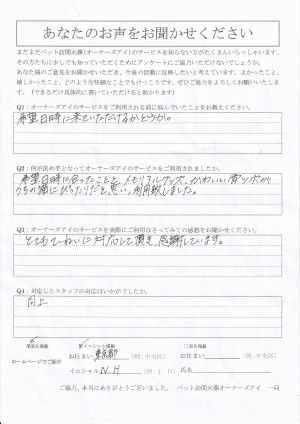 あなたのお声をお聞かせください
まだまだペット訪問火葬(オーナーズアイ)のサービスを知らない方がたくさんいらっしゃいます。
その方たちに少しでも知っていただくためにアンケートにご協力いただけないでしょうか。
あなた様のご意見をお聞かせいただき、今後の活動に反映したいと考えています。よかったこと、
嬉しかったこと、どのような些細なことでもけっこうです。ぜひご協力をよろしくお願いいたしま
す。(できるだけ具体的に書いていただけると助かります)
Q1：オーナーズアイのサービスをご利用される前に悩んでいたことをお教えください。
希望日時に来ていただけるかどうか。
Q2：何が決め手となってオーナーズアイのサービスをご利用されましたか。
希望日時に合ったことと、メモリアルグッズ、かわいい骨ツボが
うちの猫にぴったりだと思い、利用致しました。
Q3：オーナーズアイのサービスを実際にご利用なさってみての感想をお聞かせください。
とてもていねいに対応して頂き感謝しています。
Q4：対応したスタッフの対応はいかがでしたか。
同上
イニシャル掲載
ホームページでご紹介
お住まい 東京都 (例:中央区)
お住まい (例:中央区)
イニシャル N.H (例:J.H)
氏名
ご協力、本当にありがとうございました。 ペット訪問火葬オーナーズアイ 一同